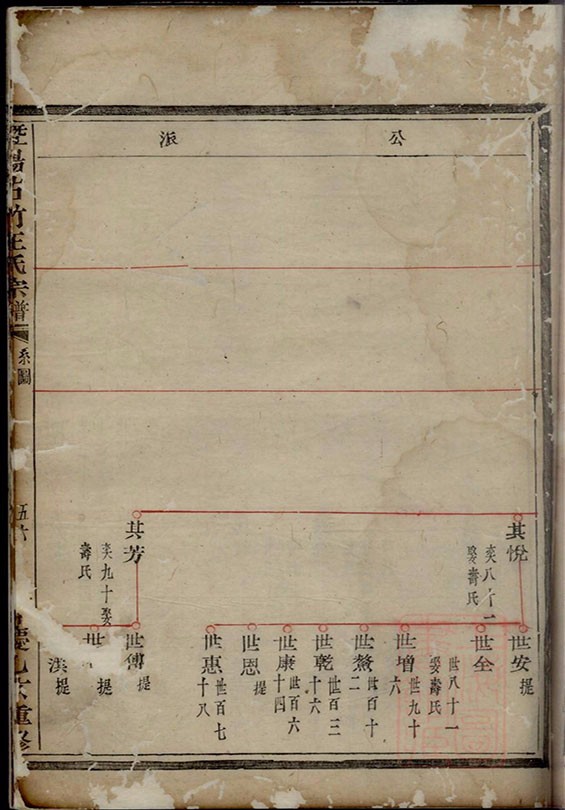 公
派
其悅
奕八十二
娶壽氏
其芳
奕九十娶
壽氏
世安提
世全
世八十一
娶壽氏
世增世九十
六
世鰲世百十
二
世乾世百三
十六
世康世百六
十四
世恩提
世惠世百七
十八
世傳提
世 提
漢提
暨陽古竹王氏宗譜
系圖
五六
重修